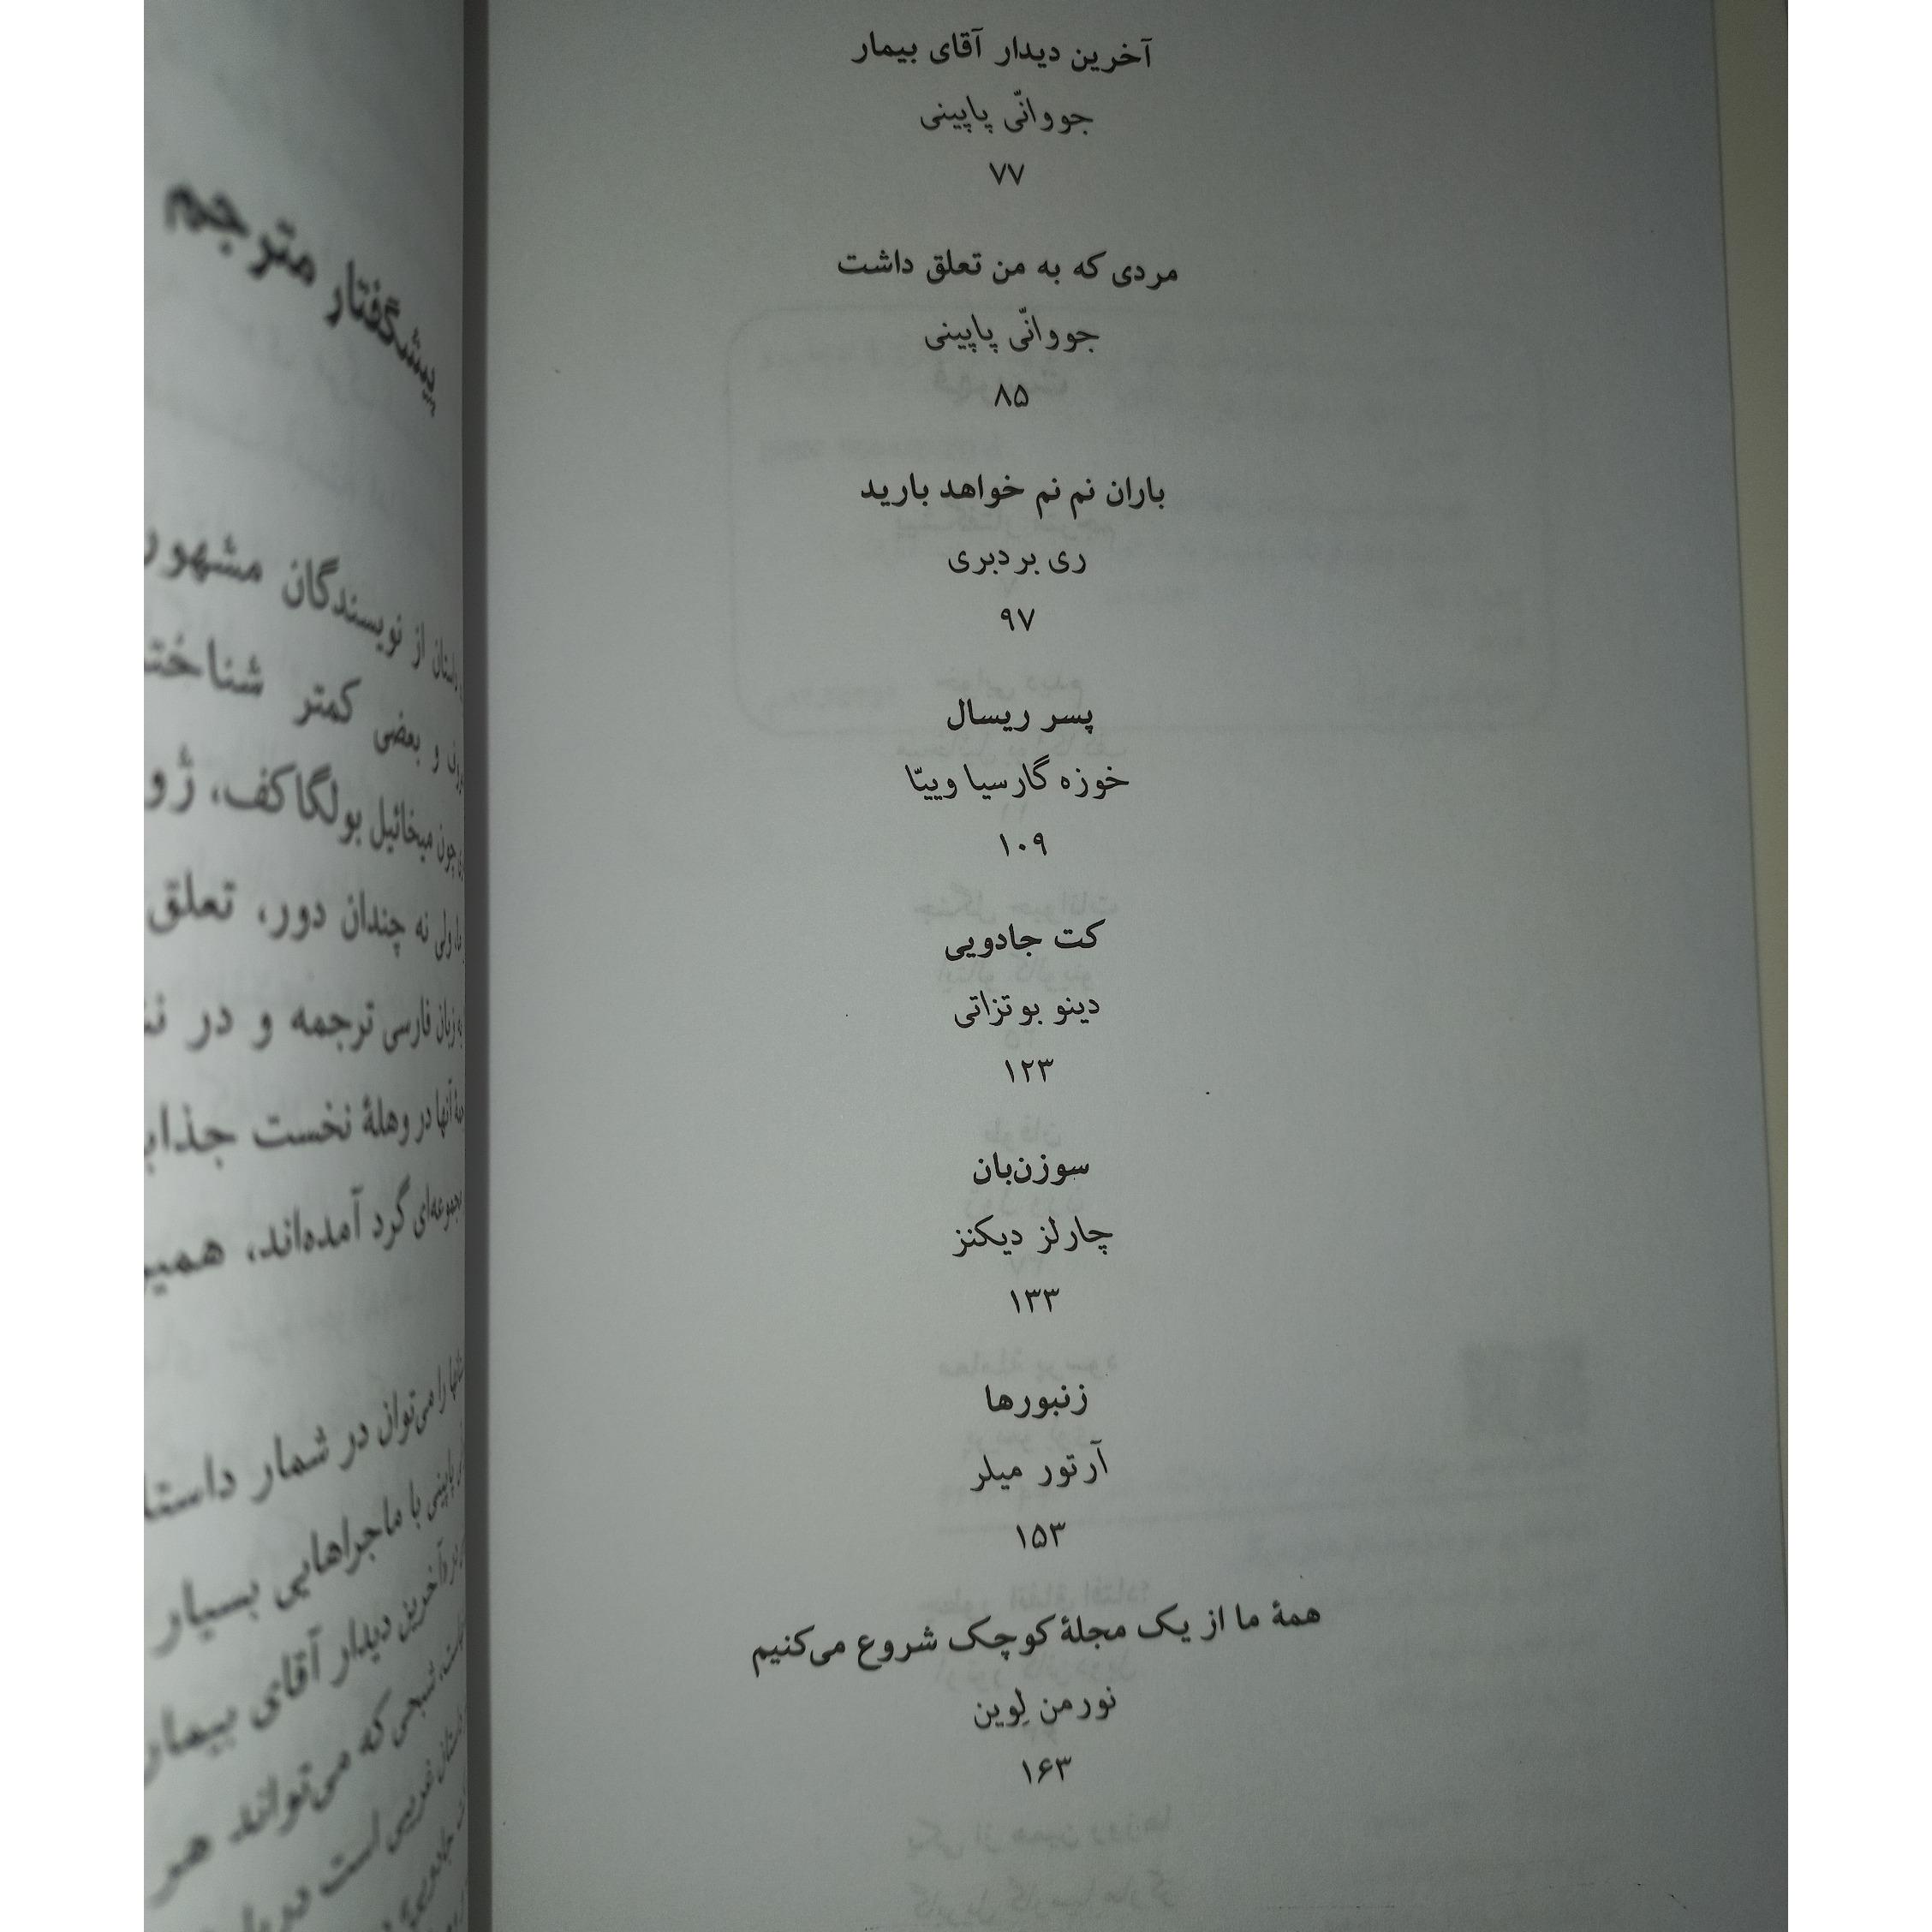 آخرین دیدار آقای بیمار
جووانّی پاپینی
۷۷
مردی که به من تعلق داشت
جووانّی پاپینی
۸۵
باران نم نم خواهد بارید
ری بردبری
۹۷
پسر ریسال
خوزه گارسیا وییّا
۱۰۹
کت جادویی
دینو بوتزاتی
۱۲۳
سوزن‌بان
چارلز دیکنز
۱۳۳
زنبورها
آرتور میلر
۱۵۳
همهٔ ما از یک مجلهٔ کوچک شروع می‌کنیم
نورمن لِوین
۱۶۳
پیشگفتار مترجم
داستان از نویسندگان مشهور
و بعضی کمتر
چون میخائیل بولگاکف، ژو
ولی نه چندان دور، تعلق
زبان فارسی ترجمه و در
آنها در وهلهٔ نخست
مجموعه‌ای گرد آمده‌اند،
را می‌توان در شمار
پاپینی با ماجراهایی بسیار
آخرین دیدار آقای بیمار
که می‌تواند هر
است